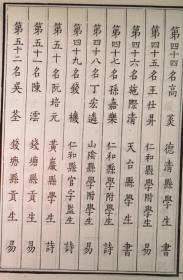 第四十四名高 德清縣學附學生 書
第四十五名王仕昇 仁和縣學附學生 易
第四十六名施際清 天台縣學生 書
第四十七名孫嘉樂 仁和縣學附學生 詩
第四十八名丁宏 山陰縣學附學生 易
第四十九名錢機 仁和縣官字監生 詩
第五十名阮培元 黃巖縣學生 詩
第五十一名陳澐 錢塘縣貢生 易
第五十二名吳荃 錢塘縣貢生 易